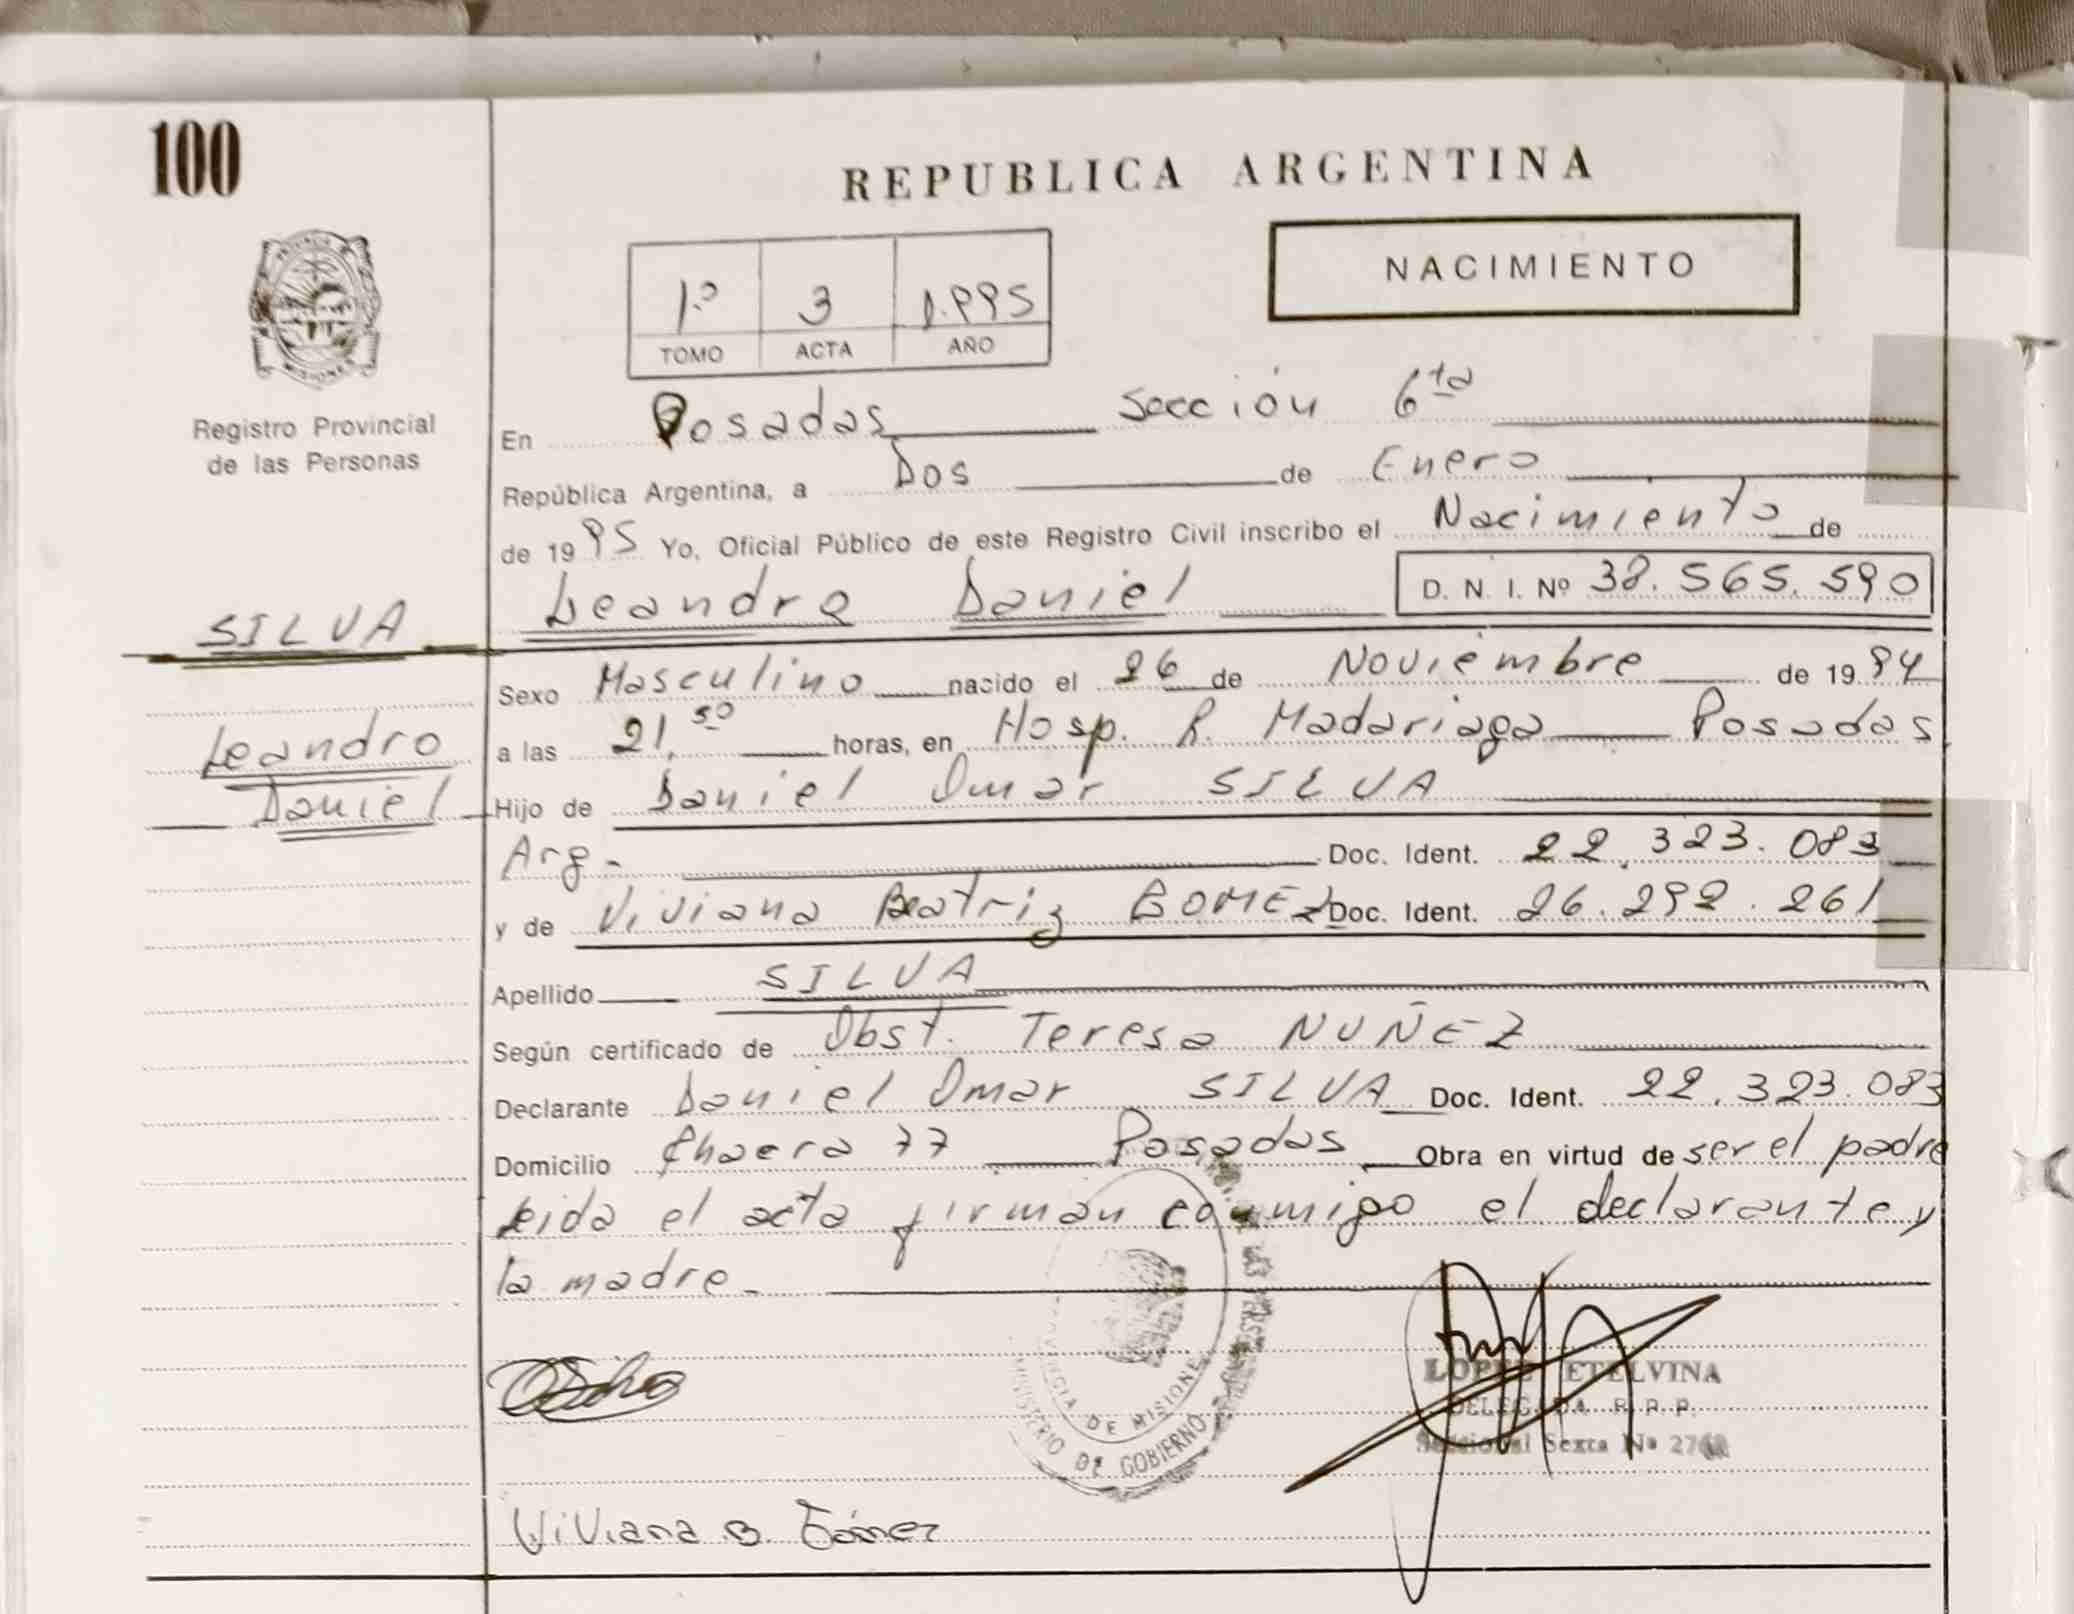 100
REPUBLICA ARGENTINA
NACIMIENTO
1º 3 1.995
TOMO ACTA AÑO
Registro Provincial
de las Personas
En Posadas Sección 6ta
República Argentina, a Dos de Enero
de 1995 Yo, Oficial Público de este Registro Civil inscribo el Nacimiento de
SILVA
Leandro Daniel D. N. I. Nº 38.565.590
Sexo Masculino nacido el 26 de Noviembre de 1994
Leandro
Daniel
a las 21,50 horas, en Hosp. R. Madariaga Posadas
Hijo de Daniel Omar SILVA
Arg- Doc. Ident. 22.323.083
y de Viviana Beatriz GOMEZ Doc. Ident. 26.292.261
Apellido SILVA
Según certificado de Obst. Teresa NUÑEZ
Declarante Daniel Omar SILVA Doc. Ident. 22.323.083
Domicilio Chacra 77 Posadas Obra en virtud de ser el padre
Leida el acta firman conmigo el declarante y
la madre-
PROVINCIA DE MISIONES
MINISTERIO DE GOBIERNO
LOPEZ ETELVINA
DELEGADA R. P. P.
Seccional Sexta Nº
Viviana B. Gómez